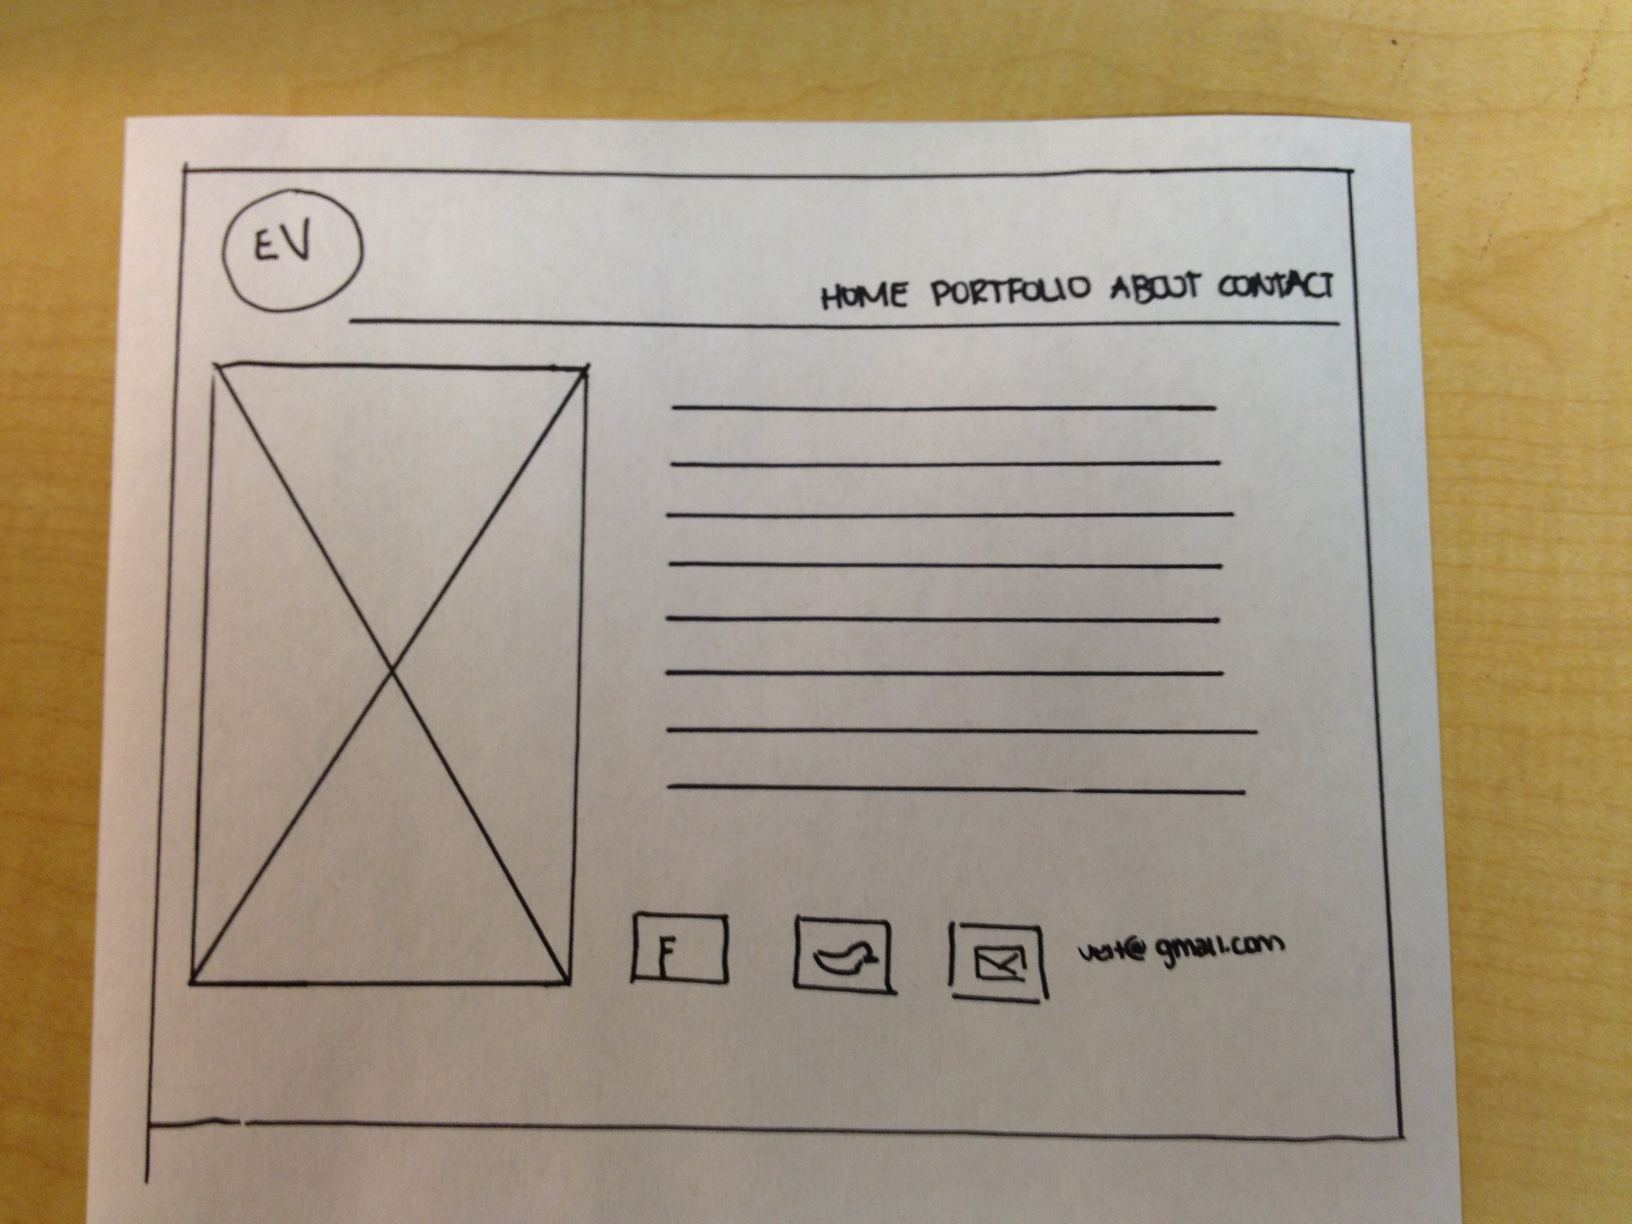 EV
HOME PORTFOLIO ABOUT CONTACT
F
@gmail.com